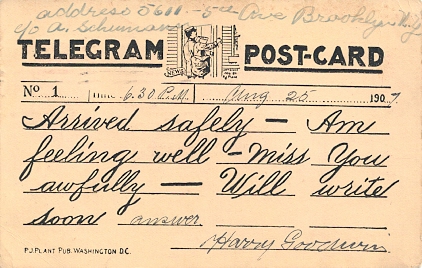 address 5611 - 5th Ave Brooklyn N.Y.
c/o A. Schumann
TELEGRAM POST-CARD
NEWS
No 1 Time 6.30 P.M. Aug 25 1907
Arrived safely — Am
feeling well — Miss You
awfully — Will write
soon answer
Harry Goodwin
P.J. PLANT PUB. WASHINGTON D.C.